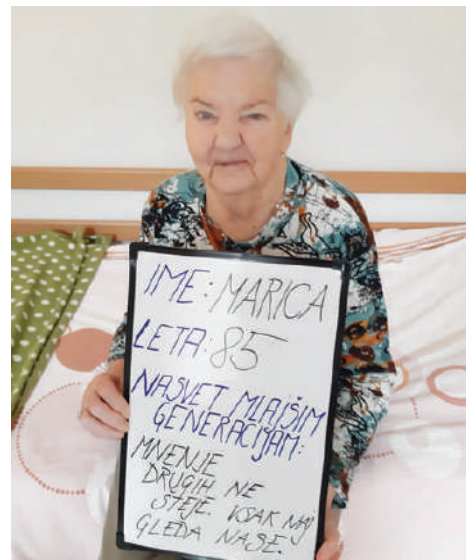 IME: MARICA
LETA: 85
NASVET MLAJŠIM
GENERACIJAM:
MNENJE
DRUGIH NE
ŠTEJE. VSAK NAJ
GLEDA NASE.